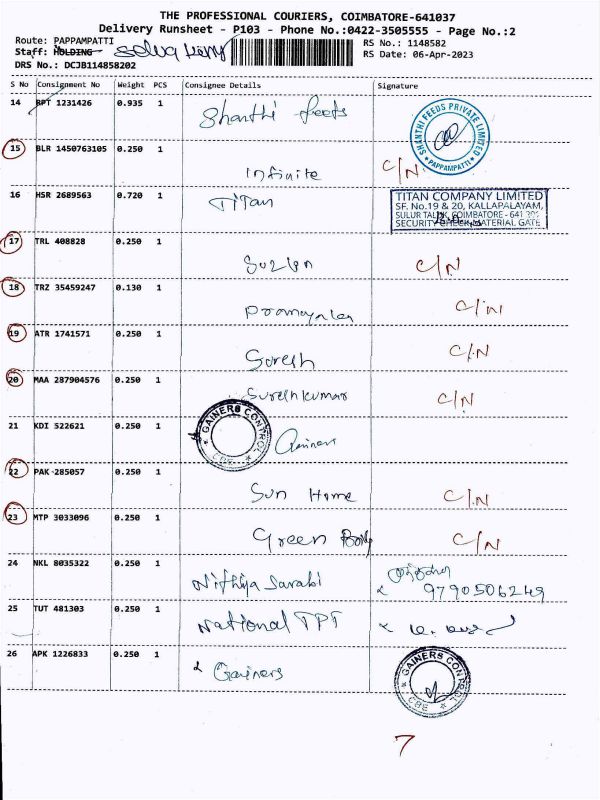 THE PROFESSIONAL COURIERS, COIMBATORE-641037
Delivery Runsheet - P103 - Phone No.:0422-3505555 - Page No.:2
Route: PAPPAMPATTI
RS No.: 1148582
Staff: HOLDING
RS Date: 06-Apr-2023
DRS No.: DCJB114858202
S No Consignment No Weight PCS Consignee Details Signature
14 RPT 1231426 0.935 1 Shanthi feeds
SHANTHI FEEDS PRIVATE LIMITED * PAPPAMPATTI *
15 BLR 1450763105 0.250 1
Infinite C/N
16 HSR 2689563 0.720 1 Titan
TITAN COMPANY LIMITED
SF. No.19 & 20, KALLAPALAYAM,
SULUR TALUK, COIMBATORE - 641
SECURITY CHECK, MATERIAL GATE
17 TRL 408828 0.250 1
Suzlon C/N
18 TRZ 35459247 0.130 1
C/N
19 ATR 1741571 0.250 1
Suresh C/N
20 MAA 287904576 0.250 1
Sureshkumar C/N
21 KDI 522621 0.250 1
GAINERS CONTROL
Gainers
22 PAK 285057 0.250 1
Sun Home C/N
23 MTP 3033096 0.250 1
Green C/N
24 NKL 8035322 0.250 1
Nithya 9790506249
25 TUT 481303 0.250 1
National TPT
26 APK 1226833 0.250 1 Gainers
GAINERS CONTROL
7